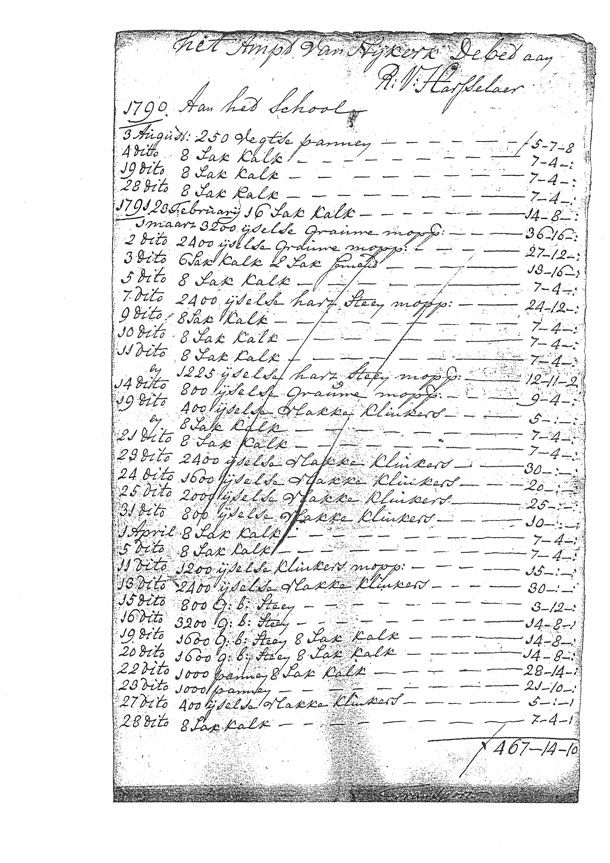 het Ampt Van Nijkerk Debed aan
R: V: Harsselaer
1790 Aan het School
3 August: 250 Vegtse pannen — 5-7-8
4 dito 8 Sak Kalk — 7-4-:
19 dito 8 Sak Kalk — 7-4-:
28 dito 8 Sak Kalk — 7-4-:
1791 23 February 16 Sak Kalk — 14-8-:
1 maart 3200 ijselse Grauwe mopp: — 36-16-:
2 dito 2400 ijselse Grauwe mopp: — 27-12-:
3 dito 6 Sak Kalk 2 Sak — 13-16-:
5 dito 8 Sak Kalk — 7-4-:
7 dito 2400 ijselse hart Steen mopp: — 24-12-:
9 dito 8 Sak Kalk — 7-4-:
10 dito 8 Sak Kalk — 7-4-:
11 dito 8 Sak Kalk — 7-4-:
en 1225 ijselse hart Steen mopp: — 12-11-2
14 dito 800 ijselse Grauwe mopp: — 9-4-:
19 dito 400 ijselse Vlakke Klinkers — 5-:-:
en 8 Sak Kalk — 7-4-:
21 dito 8 Sak Kalk — 7-4-:
23 dito 2400 ijselse Vlakke Klinkers — 30-:-:
24 dito 1600 ijselse Vlakke Klinkers — 20-:-:
25 dito 2000 ijselse Vlakke Klinkers — 25-:-:
31 dito 800 ijselse Vlakke Klinkers — 10-:-:
1 April 8 Sak Kalk — 7-4-:
5 dito 8 Sak Kalk — 7-4-:
11 dito 1200 ijselse Klinkers mopp: — 15-:-:
13 dito 2400 ijselse Vlakke Klinkers — 30-:-:
15 dito 800 G: b: Steen — 3-12-:
16 dito 3200 G: b: Steen — 14-8-:
19 dito 1600 G: b: Steen 8 Sak Kalk — 14-8-:
20 dito 1600 G: b: Steen 8 Sak Kalk — 14-8-:
22 dito 1000 pannen 8 Sak Kalk — 28-14-:
23 dito 1000 pannen — 21-10-:
27 dito 400 ijselse Vlakke Klinkers — 5-:-:
28 dito 8 Sak Kalk — 7-4-:
467-14-10